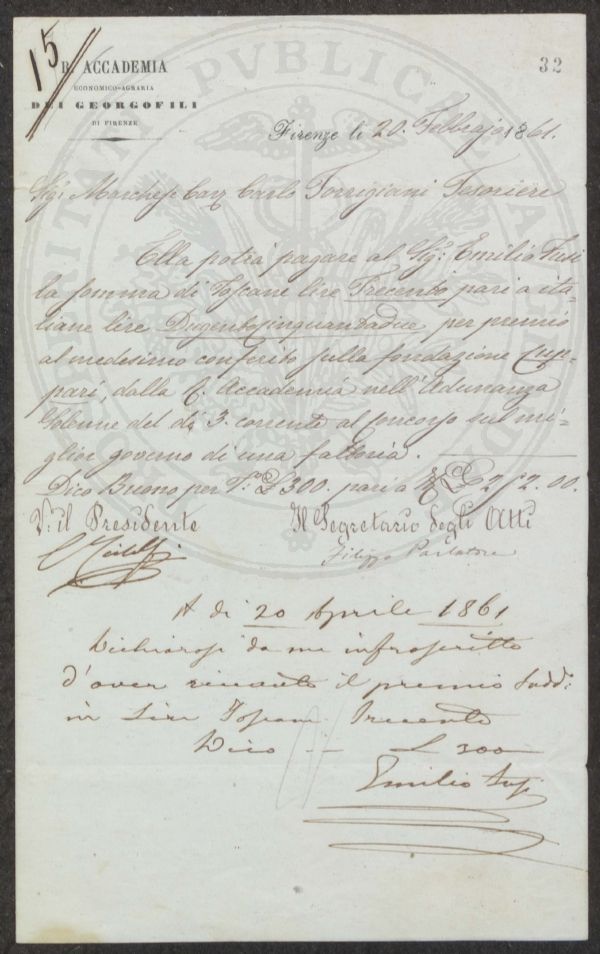 15
R. ACCADEMIA
ECONOMICO-AGRARIA
DEI GEORGOFILI
DI FIRENZE
32
Firenze li 20. Febbrajo 1861.
Sig: Marchese Cav Carlo Torrigiani Tesoriere
Ella potrà pagare al Sig: Emilio
la somma di Toscane lire Trecento pari a ita-
liane lire Dugentocinquantadue per premio
al medesimo conferito sulla fondazione Cup-
pari, dalla R. Accademia nell'Adunanza
Solenne del dì 3. corrente al concorso sul mi-
glior governo di una fattoria.
Dico Buono per T.e £ 300. pari a £ 252.00.
V: il Presidente
Il Segretario degli Atti
C Ridolfi
Filippo Parlatore
A di 20 Aprile 1861
Dichiarasi da me infrascritto
d'aver ricevuto il premio sudd:
in Lire Toscane Trecento
Dico — £ 300—
Emilio
PVBLICAE